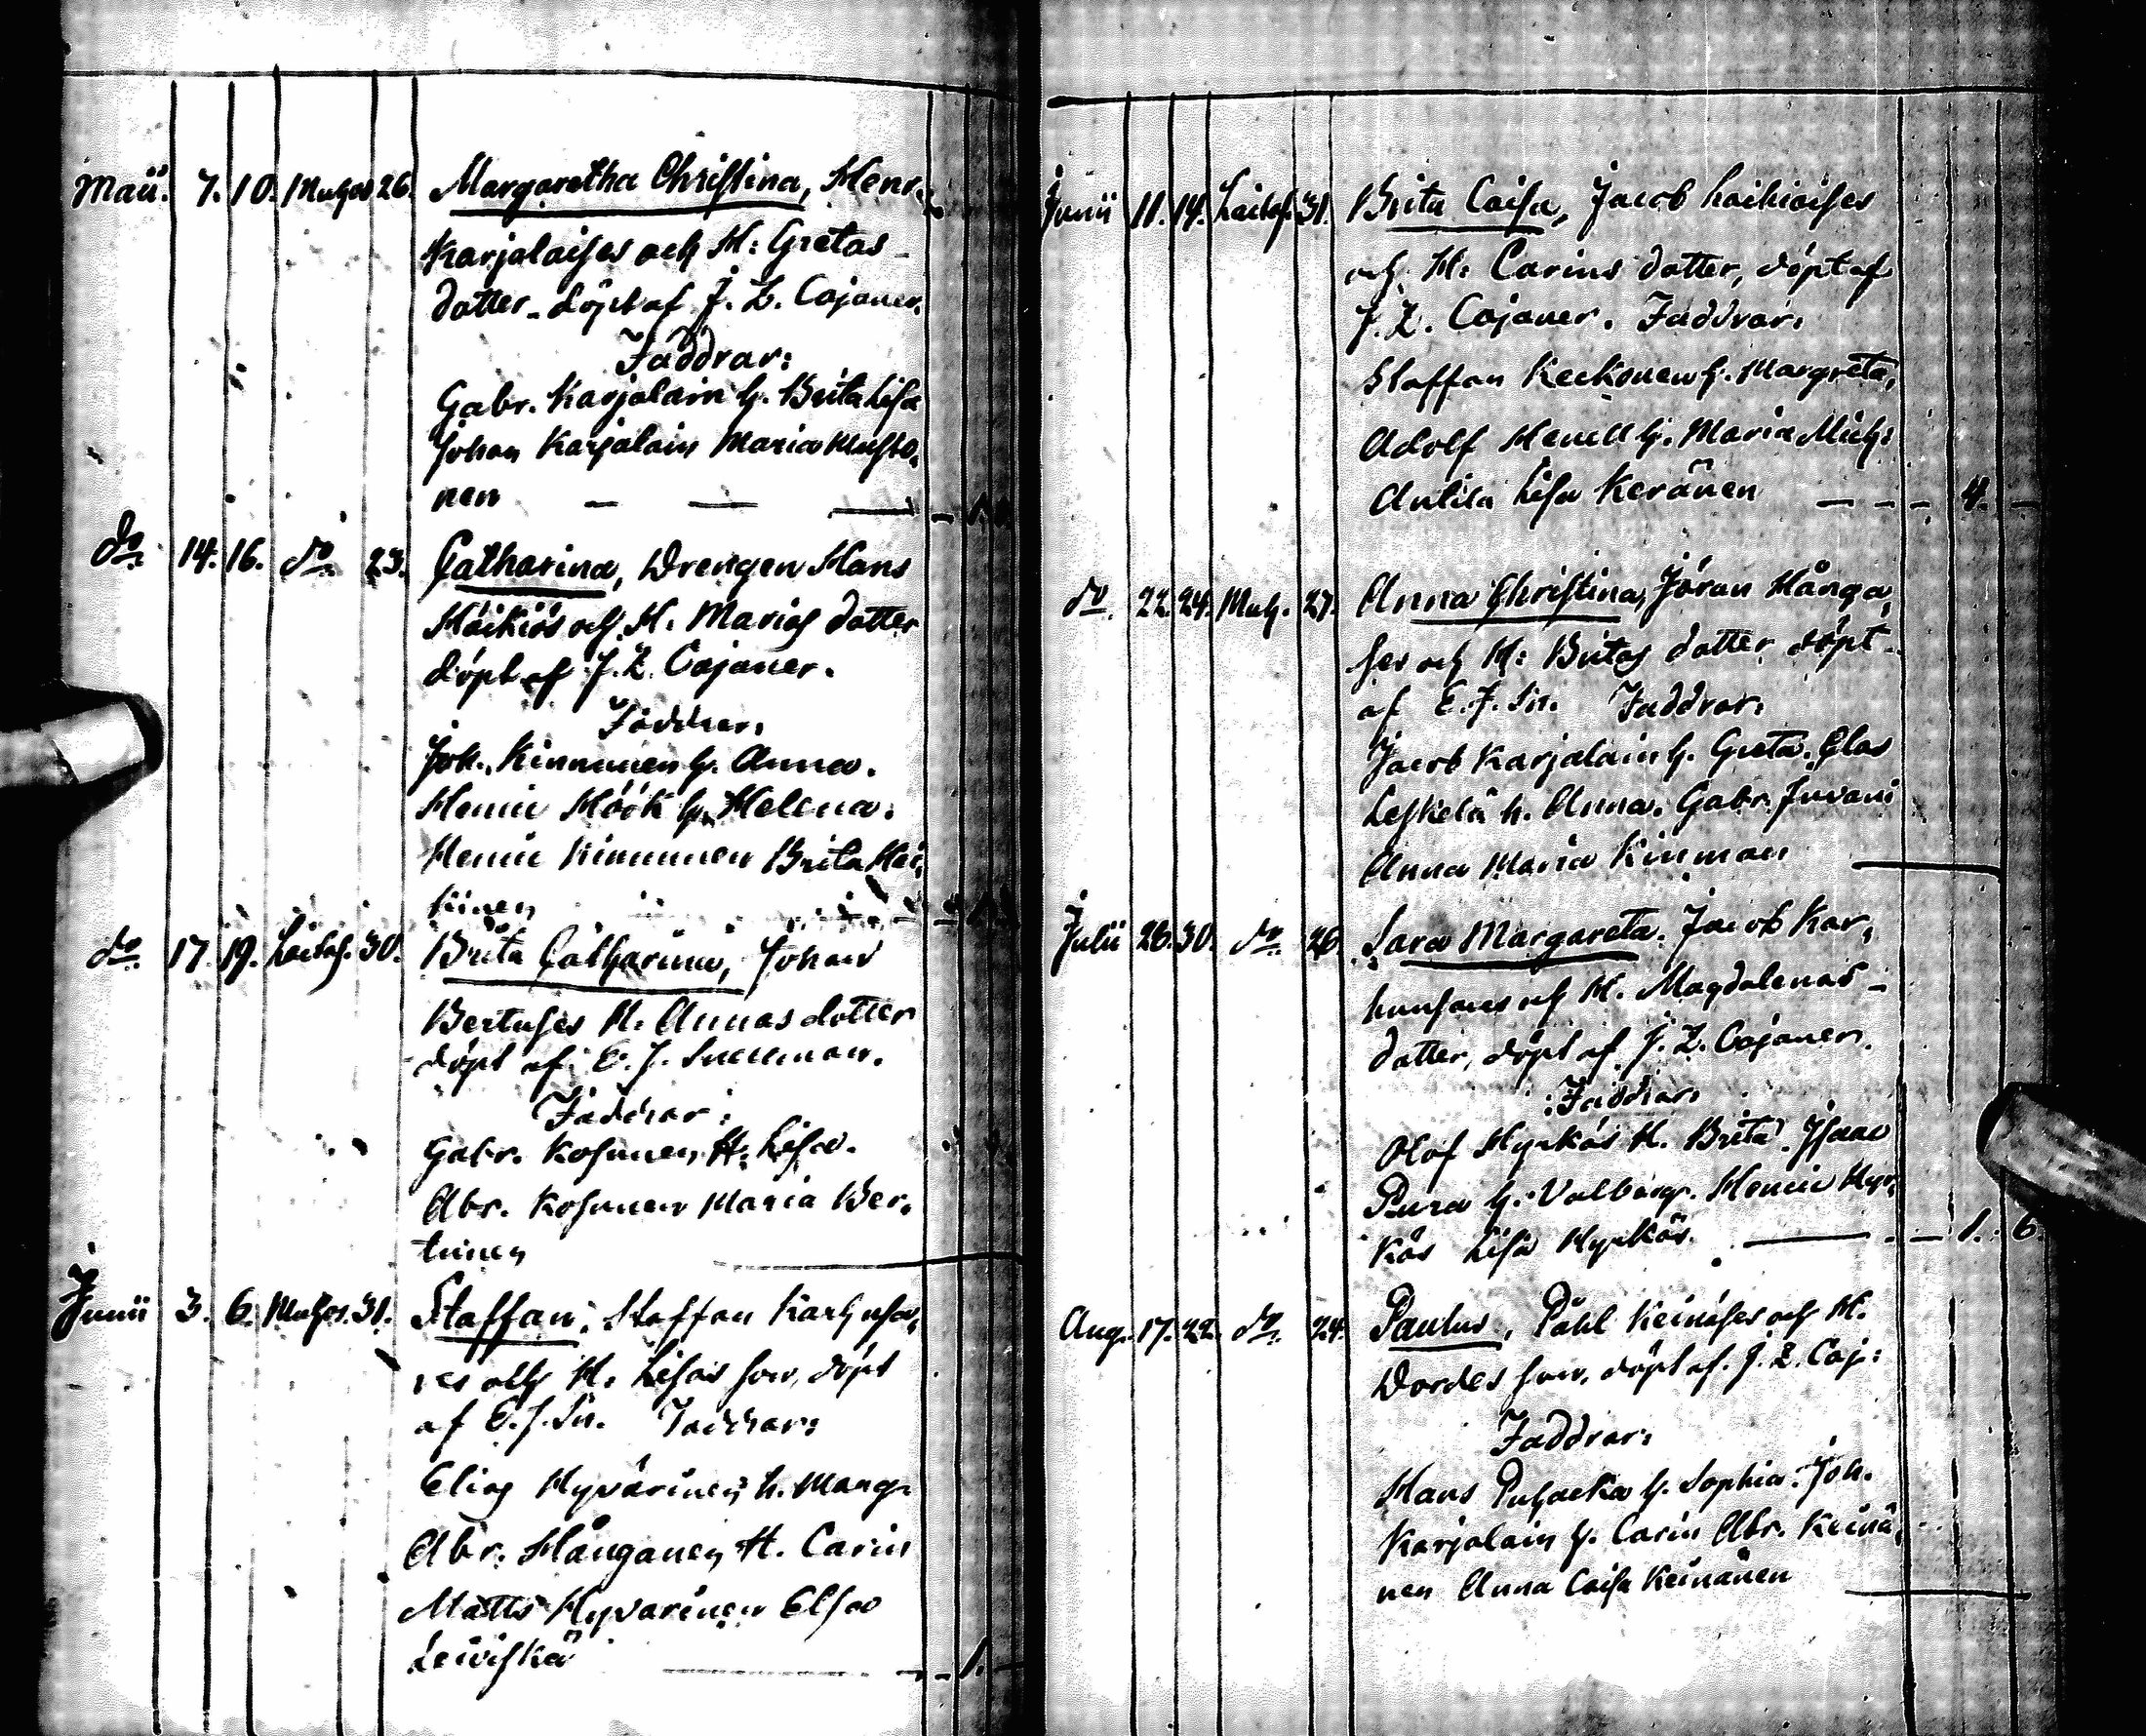 Maii. 7. 10. Muhos 26. Margaretha Christina, Henr.
Karjalaises och H: Gretas
dotter. döpt af J. Z. Cajaner.
Faddrar:
Gabr. Karjalain h. Brita Lisa
Johan Karjalain Maria Musto,
nen
do. 14. 16. do. 23. Catharina, Drengen Hans
och H. Marias dotter
döpt af J. Z. Cajaner.
Faddrar,
Joh. Kinnunen h. Anna.
Henric Höök h. Helena.
Henric Kinnunen Brita Hei,
kinen
do. 17. 19. Laitas. 30. Brita Catharina, Johan
Bertuses H. Annas dotter
döpt af E. J. Snellman.
Faddrar:
Gabr. Kosunen H. Lisa.
Abr. Kosunen Maria Ber,
tunen
Junii 3. 6. Muhos. 31. Staffan, Staffan Karhusa,
res och H. Lisas son, döpt
af E. J. Sn. Faddrar:
Elias Hyvärinen h. Marg.
Abr. Hånganen H. Carin
Matts Hyvärinen Elsa
Leiviskä 1.
Junii 11. 14. Laitas. 31. Brita Caisa, Jacob Laikiaises
och H: Carins dotter, döpt af
J. Z. Cajaner. Faddrar:
Staffan Keckonen h. Margreta,
Adolf Henell h. Maria Mich:
Antila Lisa Keränen 4.
do. 22. 24. Muh. 27. Anna Christina, Jöran Hånga,
ses och H: Britas dotter döpt
af E. J. Sn. Faddrar:
Jacob Karjalain h. Greta. Clas
Leskelä h. Anna. Gabr. Juvani
Anna Maria Kinman
Julii 26. 30. do. 26 Sara Margareta. Jacob Kar,
hunsaes och H. Magdalenas
dotter, döpt af J. Z. Cajaner.
Faddrar:
Olof Hyrkäs H. Brita. Isaac
Pura h. Valborg. Henric Hyr,
käs Lisa Hyrkäs. 1. 6
Aug. 17. 22. do. 24. Paulus, Påhl Keinäses och H.
Dordes son, döpt af. J. Z. Caj:
Faddrar:
Hans Puhacka h. Sophia. Joh.
Karjalain h. Carin Abr. Keinä,
nen Anna Caisa Keinänen